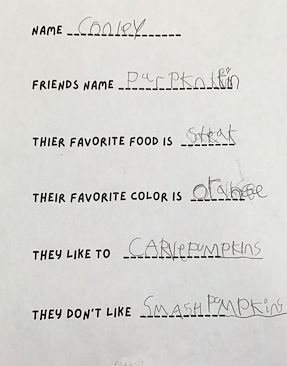 NAME Conley
FRIENDS NAME
THIER FAVORITE FOOD IS steak
THEIR FAVORITE COLOR IS orange
THEY LIKE TO CARVE PUMPKINS
THEY DON'T LIKE SMASH PUMPKINS